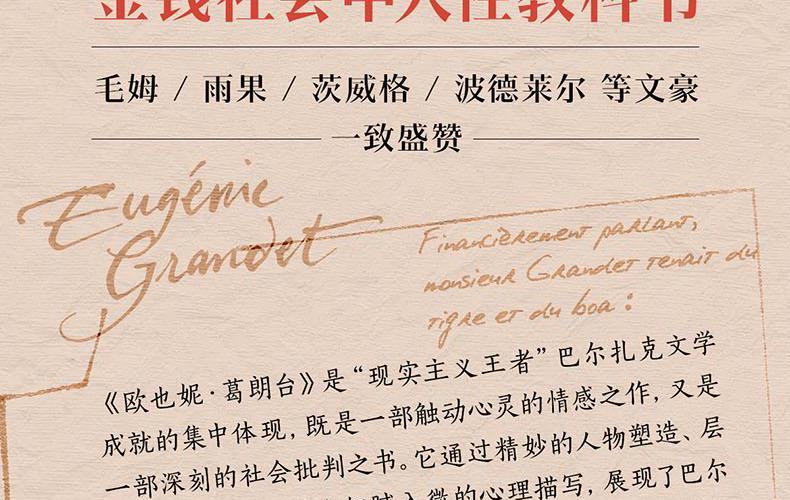 金钱社会中人性教科书
毛姆 / 雨果 / 茨威格 / 波德莱尔 等文豪
一致盛赞
Eugénie
Grandet
Financièrement parlant,
monsieur Grandet tenait du
tigre et du boa :
《欧也妮·葛朗台》是“现实主义王者”巴尔扎克文学
成就的集中体现，既是一部触动心灵的情感之作，又是
一部深刻的社会批判之书。它通过精妙的人物塑造、层
入微的心理描写，展现了巴尔